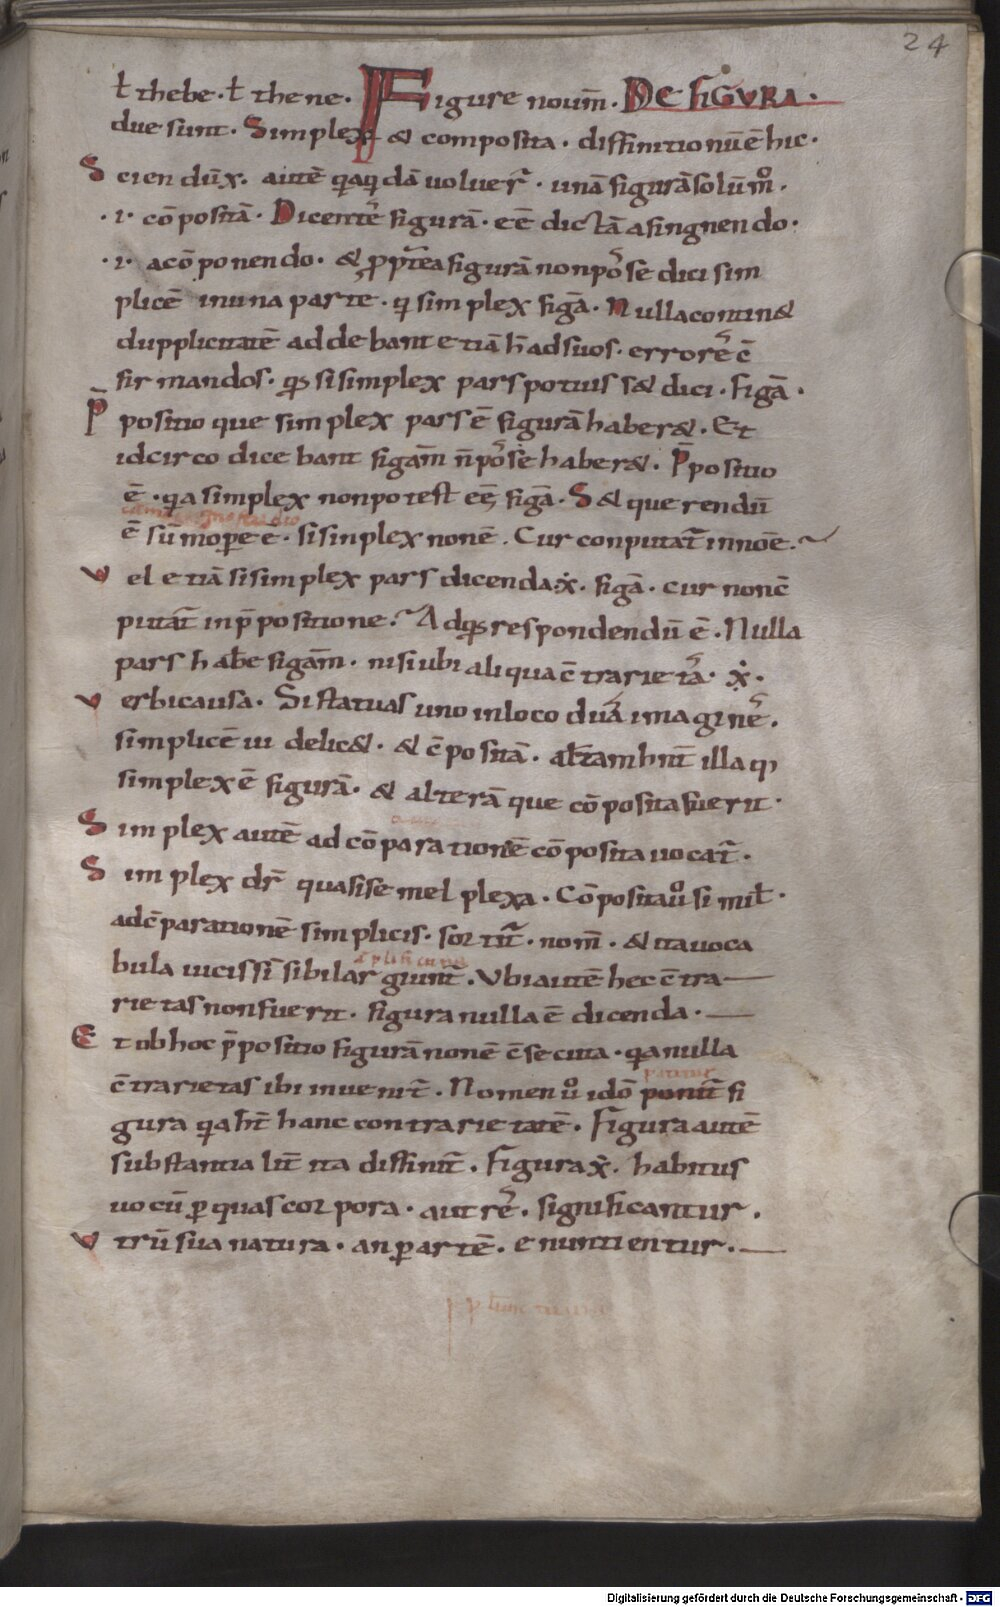 24
ƚ thebe. ƚ thene. Figure nouīm. DE FIGURA.
due sunt. Simplex & composita. diffinitionū ē hic.
Sciendū x̄. autē q̄a q̄dā uoluer̄. unā figurā solūm̊.
.i. cōpositā. Dicentē figurā. eē dictā a fingnendo.
.i. a cōponendo. & p̄p̄tea figurā non pōsē dici sim
plicē in una parte. q̄ simplex figā. Nulla contin&
dupplicitatē addebant etiā h̄ ad suos. errorē c̄
firmandos. qs si simplex pars potuis s& dici. figā.
P̄positio que simplex pars ē figurā haber&. Et
idcirco dicebant figām n̄ pōsē haber&. P̄positio
ē. q̄a simplex non potest eē figā. S& querendū
ē sūmopere. si sinplex non ē. Cur conputat̄ in noē.
Vel etiā si simplex pars dicenda. x̄. figā. cur non c̄
putat̄ in p̄positione. Ad qs respondendū ē. Nulla
pars habe figām. nisi ubi aliqua c̄trarietā. x̄.
Verbi causa. Si statuas uno in loco duā imaginē.
simplicē uidelic&. & c̄positā. alt̄am hn̄t illa q
simplex ē figurā. & alterā que cōposita fuerit.
Simplex autē ad cōparationē cōposita uocat̄.
Simplex dr̄ quasi semel plexa. Cōposita ů simil̄.
ad c̄parationē simplicis. sortit̄. nom̄. & ita uoca
bula uicissī sibi largiunt̄. Ubi autē hec c̄tra
rietas non fuerit. figura nulla ē dicenda.
Et ob hoc p̄positio figurā non ē c̄secuta. q̄a nulla
c̄trarietas ibi inuenit̄. Nomen ů idō ponit̄ fi
gura q̄a ht̄ hanc contrarietatē. Figura autē
substantialit̄ ita diffinit̄. Figura x̄. habitus
uocū p quas corpora. aut rē. significantur.
Vtrū sua natura. an p artē. enuntientur.
Digitalisierung gefördert durch die Deutsche Forschungsgemeinschaft - DFG